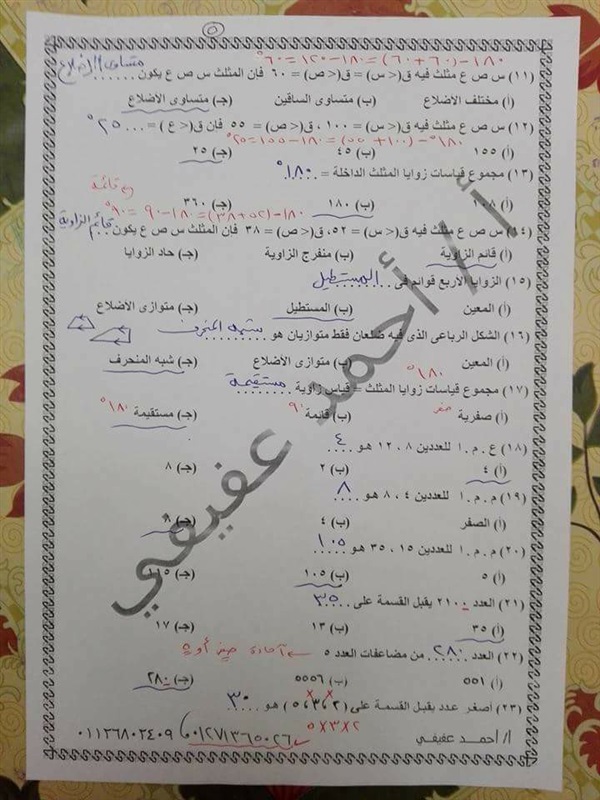 ٥
١٨٠-(٦٠+٦٠)=١٨٠-١٢٠=٦٠°
متساوى الأضلاع
(١١) س ص ع مثلث فيه ق(< س) = ق(< ص) = ٦٠ فان المثلث س ص ع يكون......
(أ) مختلف الاضلاع (ب) متساوى الساقين (جـ) متساوى الاضلاع
(١٢) س ص ع مثلث فيه ق(< س) = ١٠٠ ، ق(< ص) = ٥٥ فان ق(< ع) = ...٢٥°
١٨٠°-(١٠٠+٥٥)=١٨٠-١٥٥=٢٥°
(أ) ١٥٥ (ب) ٤٥ (جـ) ٢٥
(١٣) مجموع قياسات زوايا المثلث الداخلة = ١٨٠°
(أ) ١٠٨ (ب) ١٨٠ (جـ) ٣٦٠
قائمة
١٨٠-(٥٢+٣٨)=١٨٠-٩٠=٩٠°
(١٤) س ص ع مثلث فيه ق(< س) = ٥٢، ق(< ص) = ٣٨ فان المثلث س ص ع يكون قائم الزاوية
(أ) قائم الزاوية (ب) منفرج الزاوية (جـ) حاد الزوايا
(١٥) الزوايا الاربع قوائم فى المستطيل
(أ) المعين (ب) المستطيل (جـ) متوازى الاضلاع
(١٦) الشكل الرباعى الذى فيه ضلعان فقط متوازيان هو شبه المنحرف
(أ) المعين (ب) متوازى الاضلاع (جـ) شبه المنحرف
١٨٠°
(١٧) مجموع قياسات زوايا المثلث = قياس زاوية مستقيمة
(أ) صفرية صفر (ب) قائمة ٩٠ (جـ) مستقيمة ١٨٠°
(١٨) ع . م . ا للعددين ٨ ، ١٢ هو ٤
(أ) ٤ (ب) ٢ (جـ) ٨
(١٩) م . م . ا للعددين ٤ ، ٨ هو ٨
(أ) الصفر (ب) ٤ (جـ) ٨
(٢٠) م . م . ا للعددين ١٥ ، ٣٥ هو ١٠٥
(أ) ٥ (ب) ١٠٥ (جـ)
(٢١) العدد ٢١٠٠ يقبل القسمة على ٣٥
(أ) ٣٥ (ب) ١٣ (جـ) ١٧
(٢٢) العدد ٢٨٠ من مضاعفات العدد ٥ آحاده صفر أو ٥
(أ) ٥٥١ (ب) ٥٥٥٦ (جـ) ٢٨٠
(٢٣) أصغر عدد يقبل القسمة على (٢ ، ٣ ، ٥) هو ٣٠
٢×٣×٥
ا/ احمد عفيفي ٠١٢٧١٣٦٥٠٢٦ ٠١١٢٦٨٠٢٤٠٩
أ/ أحمد عفيفي